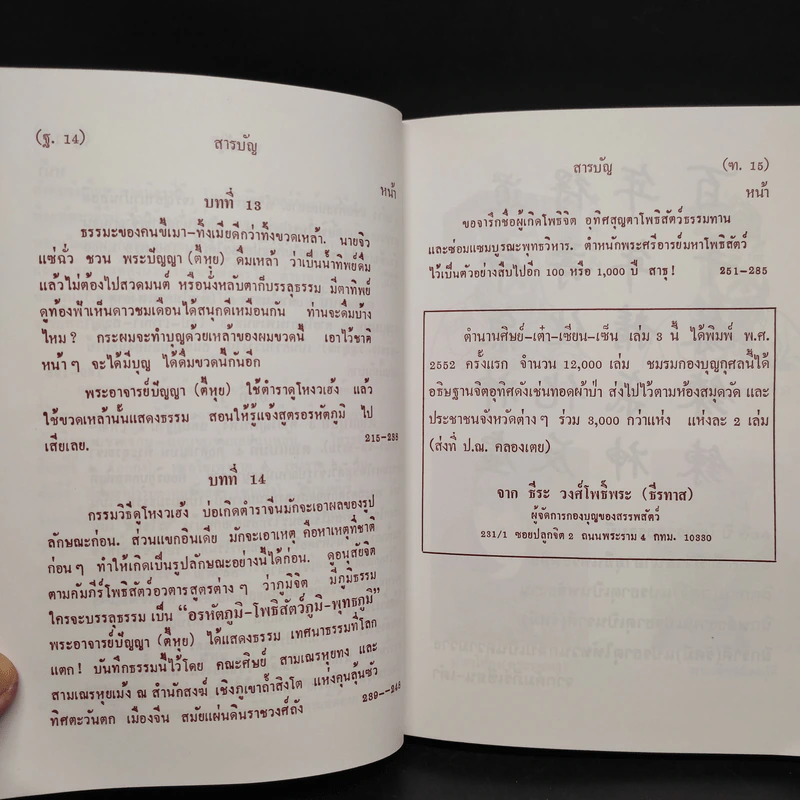 (ฐ. 14)
สารบัญ
หน้า
บทที่ 13
ธรรมะของคนขี้เมา-ทั้งเมียดีกว่าทั้งขวดเหล้า. นายจิว
แซ่ฉั่ว ชวน พระปัญญา (ตื๊หุย) ดื่มเหล้า ว่าเป็นน้ำทิพย์ดื่ม
แล้วไม่ต้องไปสวดมนต์ หรือนั่งหลับตาก็บรรลุธรรม มีตาทิพย์
ดูท้องฟ้าเห็นดาวชมเดือนได้สนุกดีเหมือนกัน ท่านจะดื่มบ้าง
ไหม? กระผมจะทำบุญด้วยเหล้าของผมขวดนี้ เอาไว้ชาติ
หน้าๆ จะได้มีบุญ ได้ดื่มขวดนี้กันอีก
พระอาจารย์ปัญญา (ตื๊หุย) ใช้ตำราดูโหงวเฮ้ง แล้ว
ใช้ขวดเหล้านั้นแสดงธรรม สอนให้รู้แจ้งสูตรอรหัตภูมิ ไป
เสียเลย. 215-238
บทที่ 14
กรรมวิธีดูโหงวเฮ้ง บ่อเกิดตำราจีนมักจะเอาผลของรูป
ลักษณะก่อน. ส่วนแขกอินเดีย มักจะเอาเหตุ คือหาเหตุที่ชาติ
ก่อนๆ ทำให้เกิดเป็นรูปลักษณะอย่างนี้ได้ก่อน. ดูอนุสัยจิต
ตามคัมภีร์โพธิสัตว์อวตารสูตรต่างๆ ว่าภูมิจิต มีภูมิธรรม
ใครจะบรรลุธรรม เป็น "อรหัตภูมิ-โพธิสัตว์ภูมิ-พุทธภูมิ"
พระอาจารย์ปัญญา (ตื๊หุย) ได้แสดงธรรม เทศนาธรรมที่โลก
แตก! บันทึกธรรมนี้ไว้โดย คณะศิษย์ สามเณรหุยทง และ
สามเณรหุยเม้ง ณ สำนักสงฆ์ เชิงภูเขาถ้ำสิงโต แห่งคุนลุ้นซัว
ทิศตะวันตก เมืองจีน สมัยแผ่นดินราชวงศ์ถัง 239--248
สารบัญ
(ฑ. 15)
หน้า
ขอจารึกชื่อผู้เกิดโพธิจิต อุทิศสุญตาโพธิสัตว์ธรรมทาน
และซ่อมแซมบูรณะพุทธวิหาร. ตำหนักพระศรีอารย์มหาโพธิสัตว์
ไว้เป็นตัวอย่างสืบไปอีก 100 หรือ 1,000 ปี สาธุ! 251-285
ตำนานศิษย์-เต๋า-เซียน-เซ็น เล่ม 3 นี้ ได้พิมพ์ พ.ศ.
2552 ครั้งแรก จำนวน 12,000 เล่ม ชมรมกองบุญกุศลนี้ได้
อธิษฐานจิตอุทิศดังเช่นทอดผ้าป่า ส่งไปไว้ตามห้องสมุดวัด และ
ประชาชนจังหวัดต่างๆ ร่วม 3,000 กว่าแห่ง แห่งละ 2 เล่ม
(ส่งที่ ป.ณ. คลองเตย)
จาก ธีระ วงศ์โพธิ์พระ (ธีรทาส)
ผู้จัดการกองบุญของสรรพสัตว์
231/1 ซอยปลูกจิต 2 ถนนพระราม 4 กทม. 10330